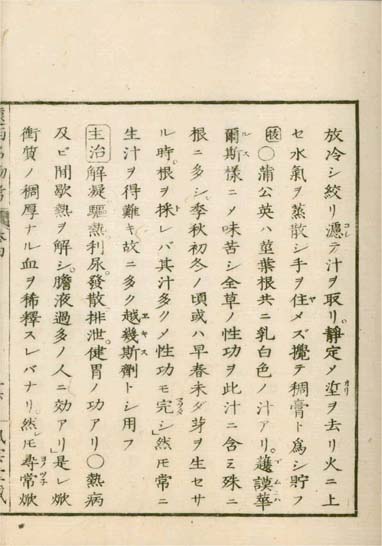 放冷シ絞リ濾テ汁ヲ取リ。靜定メ埿ヲ去リ火ニ上
セ水氣ヲ蒸散シ手ヲ住メズ攪テ稠膏ト爲シ貯フ
○蒲公英ハ莖葉根共ニ乳白色ノ汁アリ。護謨華
爾斯樣ニメ味苦シ全草ノ性功ヲ此汁ニ含ミ殊ニ
根ニ多シ。季秋初冬ノ頃或ハ早春未ダ芽ヲ生セサ
ル時。根ヲ採レバ其汁多クメ性功モ完シ」然モ常ニ
生汁ヲ得難キ故ニ多ク越幾斯劑トシ用フ
主治 解凝驅熱利尿。發散排泄。健胃ノ功アリ○熱病
及ビ間歇熱ヲ解シ。膽液過多ノ人ニ効アリ」是レ焮
衝質ノ稠厚ナル血ヲ稀釋スレバナリ。然モ尋常焮